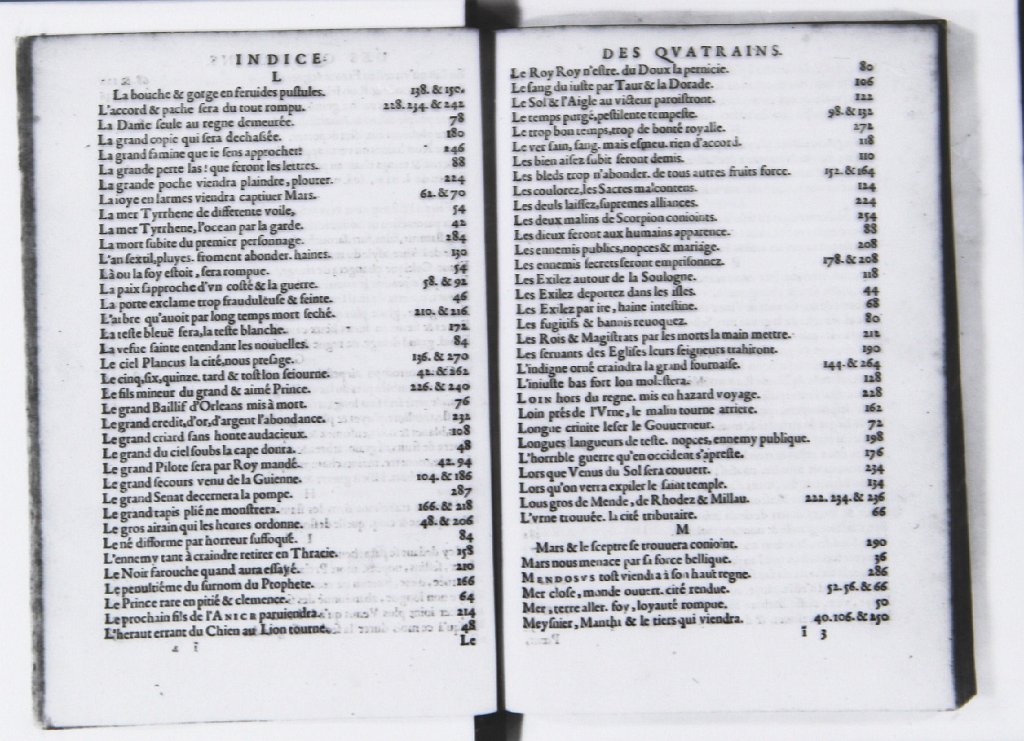 INDICE
L
La bouche & gorge en feruides pustules. 138. & 150.
L'accord & pache sera du tout rompu. 228. 234. & 242
La Dame seule au regne demeurée. 78
La grand copie qui sera dechassée. 180
La grand famine que ie sens approcher! 246
La grande perte las! que feront les lettres. 88
La grande poche viendra plaindre, plourer. 224
La ioye en larmes viendra captiuer Mars. 62. & 70
La mer Tyrrhene de differente voile, 54
La mer Tyrrhene, l'ocean par la garde. 42
La mort subite du premier personnage. 284
L'an sextil, pluyes. froment abonder. haines. 130
Là ou la foy estoit, sera rompue. 54
La paix s'approche d'vn costé & la guerre. 58. & 92
La porte exclame trop frauduleuse & feinte. 46
L'arbre qu'auoit par long temps mort seché. 210. & 216.
La teste bleuë fera, la teste blanche. 172
La vefue sainte entendant les nouuelles. 84
Le ciel Plancus la cité, nous presage. 136. & 270
Le cinq, six, quinze. tard & tost lon seiourne. 42. & 262
Le fils mineur du grand & aimé Prince. 226. & 240
Le grand Baillif d'Orleans mis à mort. 76
Le grand credit, d'or, d'argent l'abondance. 232
Le grand criard sans honte audacieux. 108
Le grand du ciel soubs la cape donra. 48
Le grand Pilote sera par Roy mandé. 42. 94
Le grand secours venu de la Guienne. 104. & 186
Le grand Senat decernera la pompe. 287
Le grand tapis plié ne monstrera. 166. & 218
Le gros airain qui les heures ordonne. 48. & 206
Le né difforme par horreur suffoqué. 84
L'ennemy tant à craindre retirer en Thracie. 158
Le Noir farouche quand aura essayé. 210
Le penultiéme du surnom du Prophete. 166
Le Prince rare en pitié & clemence. 64
Le prochain fils de l'ANIER paruiendra. 214
L'heraut errant du Chien au Lion tourne. 48
Le
DES QVATRAINS.
Le Roy Roy n'estre. du Doux la pernicie. 80
Le sang du iuste par Taur & la Dorade. 106
Le Sol & l'Aigle au victeur paroistront. 122
Le temps purgé, pestilente tempeste. 98. & 132
Le trop bon temps, trop de bonté royalle. 272
Le ver sain, sang. mais esmeu. rien d'accord. 118
Les bien aisez subit seront demis. 110
Les bleds trop n'abonder. de tous autres fruits force. 152. & 164
Les coulorez, les Sacres malcontens. 124
Les deuls laissez, supremes alliances. 224
Les deux malins de Scorpion conioints. 254
Les dieux feront aux humains apparence. 88
Les ennemis publics, nopces & mariage. 208
Les ennemis secrets seront emprisonnez. 178. & 208
Les Exilez autour de la Soulogne. 118
Les Exilez deportez dans les isles. 44
Les Exilez par ire, haine intestine. 68
Les fugitifs & bannis reuoquez. 80
Les Rois & Magistrats par les morts la main mettre. 212
Les seruants des Eglises leurs seigneurs trahiront. 190
L'indigne orné craindra la grand fournaise. 144. & 264
L'iniuste bas fort lon molestera. 128
LOIN hors du regne. mis en hazard voyage. 228
Loin prés de l'Vrne, le malin tourne arriere. 162
Longue crinite leser le Gouuerneur. 72
Longues langueurs de teste. nopces, ennemy publique. 198
L'horrible guerre qu'en occident s'apreste. 176
Lors que Venus du Sol sera couuert. 234
Lors qu'on verra expiler le saint temple. 134
Lous gros de Mende, de Rhodez & Millau. 222. 234. & 236
L'vrne trouuée. la cité tributaire. 66
M
Mars & le sceptre se trouuera conioint. 290
Mars nous menace par sa force bellique. 36
MENDOSVS tost viendra à son haut regne. 286
Mer close, monde ouuert. cité rendue. 52. 56. & 66
Mer, terre aller. foy, loyauté rompue. 50
Meysnier, Manthi & le tiers qui viendra. 40. 106. & 250
I 3